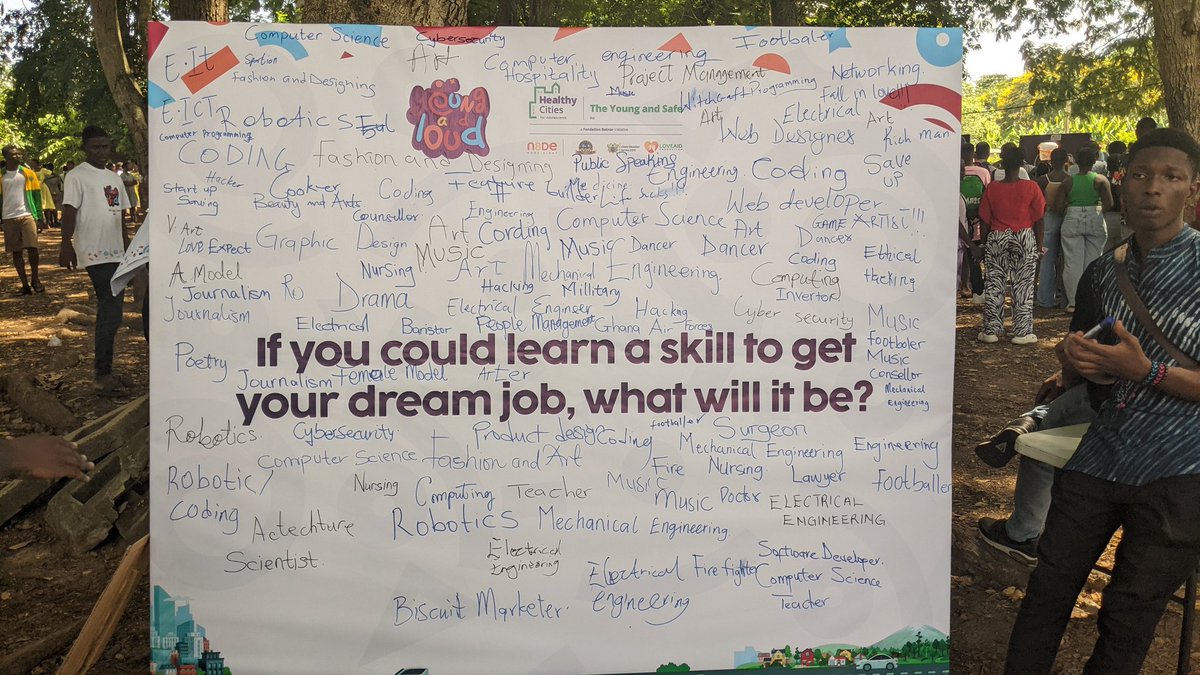 Computer Science Cybersecurity Footballer
E.It Art Computer engineering
Fashion and Designing Hospitality Project Management Networking.
Music Witchcraft Programming Fall in love!!!
YOUNG and loud
Healthy Cities for Adolescents
The Young and Safe
a Fondation Botnar Initiative
LOVEAID
E.ICT Robotics Art Electrical Art
Computer Programming Web Designes Rich man
CODING Fashion and Designing Public Speaking
Engineering. Coding Save UP
Hacker Cooker Coding
Start up Beauty and Arts Medicine
Saving Counsellor Engineering Web developer
V Art Art Cording Computer Science Art GAME ARTIST!!!
LOVE Expect Graphic Design MUSIC Music Dancer Dancer Dancer
A Model Nursing Art Mechanical Engineering. Coding Ethical Hacking
Journalism Drama Hacking Military Computing
Journalism Electrical Engineer Hacking Invertor
Cyber security MUSIC
Electrical Baristor People Management Ghana Air Forces
Footboler
Poetry
If you could learn a skill to get
Music
Journalism Female Model Arter Consellor
your dream job, what will it be?
Mechanical Engineering
Robotics. Cybersecurity. Product desig Coding footballer Surgeon
Computer Science Fashion and Art Mechanical Engineering Engineering
Robotic Nursing Computing Teacher Music Fire Nursing. Lawyer footballer
Coding Actechture Robotics Mechanical Engineering. Music Doctor ELECTRICAL
ENGINEERING
Scientist. Electrical
Engineering
Electrical Fire fighter Software Developer.
Computer Science
Biscuit Marketer. engineering Teacher